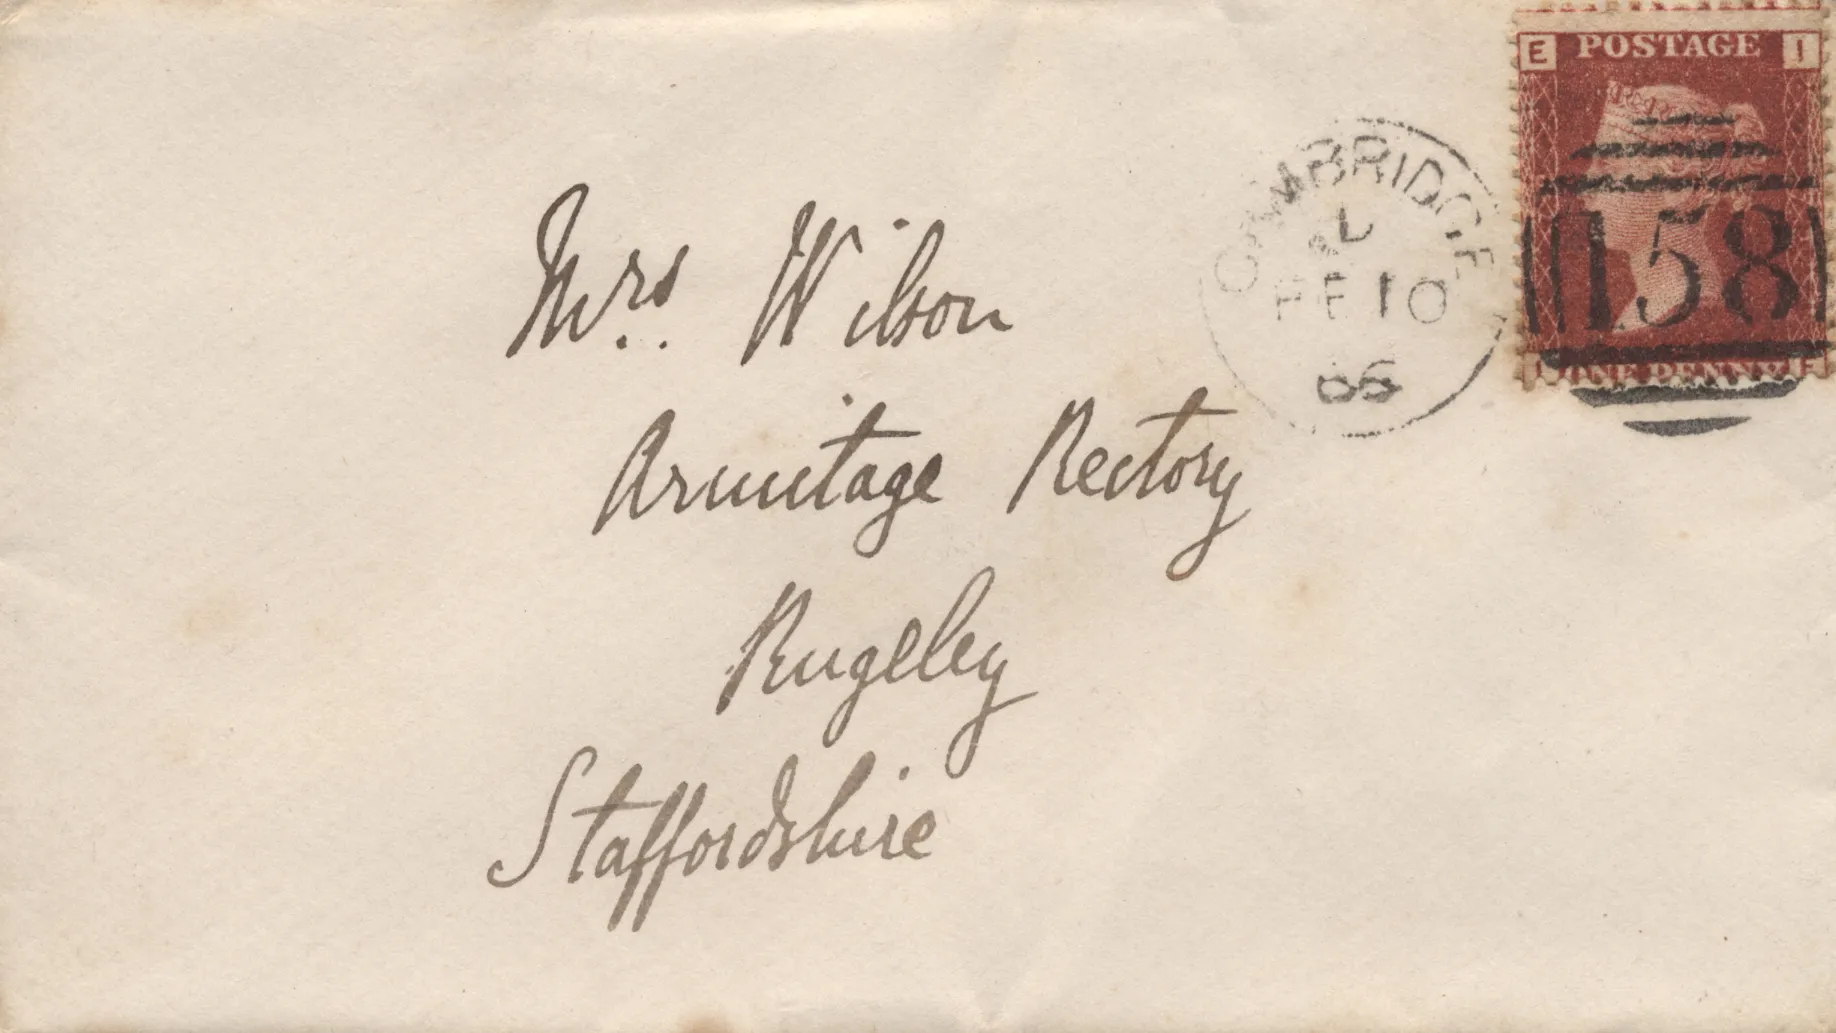 E POSTAGE I
CAMBRIDGE
L
A
FE 10
66
158
I ONE PENNY E
Mrs. Wilson
Armitage Rectory
Rugeley
Staffordshire